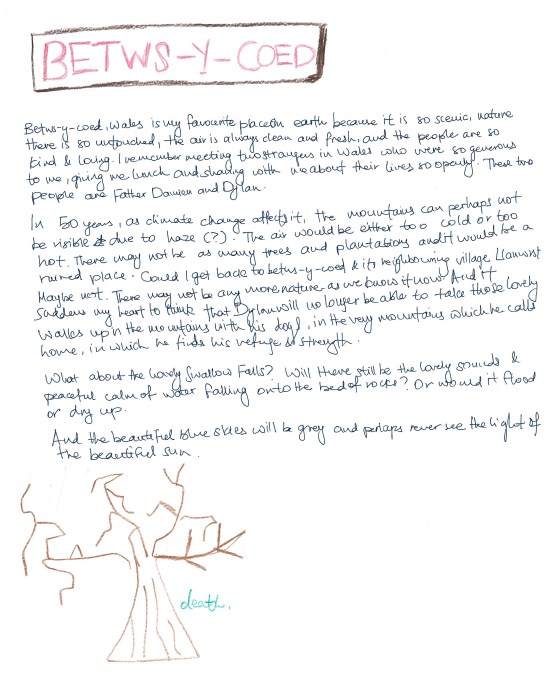 BETWS-Y-COED
Betws-y-coed, Wales is my favourite place on earth because it is so scenic, nature
there is so untouched, the air is always clean and fresh, and the people are so
kind & loving. I remember meeting two strangers in Wales who were so generous
to me, giving me lunch and sharing with me about their lives so openly. These two
people are Father Damien and Dylan.
In 50 years, as climate change affects it, the mountains can perhaps not
be visible due to haze (?). The air would be either too cold or too
hot. There may not be as many trees and plantations and it would be a
ruined place. Could I get back to betws-y-coed & its neighbouring village Llanrwst
Maybe not. There may not be any more nature as we know it now. And it
saddens my heart to think that Dylan will no longer be able to take those lovely
walks up in the mountains with his dog, in the very mountains which he calls
home, in which he finds his refuge & strength.
What about the lovely Swallow Falls? Will there still be the lovely sounds &
peaceful calm of water falling onto the bed of rocks? Or would it flood
or dry up.
And the beautiful blue skies will be grey and perhaps never see the light of
the beautiful sun.
death.